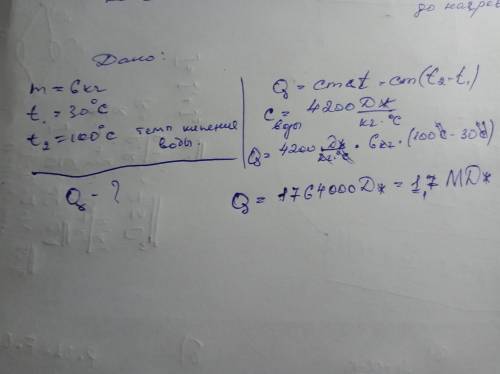 до нагрев
Дано:
m = 6кг
t₁ = 30°C
t₂ = 100°C темп кипения
воды.
Q - ?
Q = cmΔt = cm(t₂-t₁)
c воды = 4200 Дж/кг·°C
Q = 4200 Дж/кг·°C · 6кг · (100°C - 30°C)
Q = 1764000Дж = 1,7 МДж